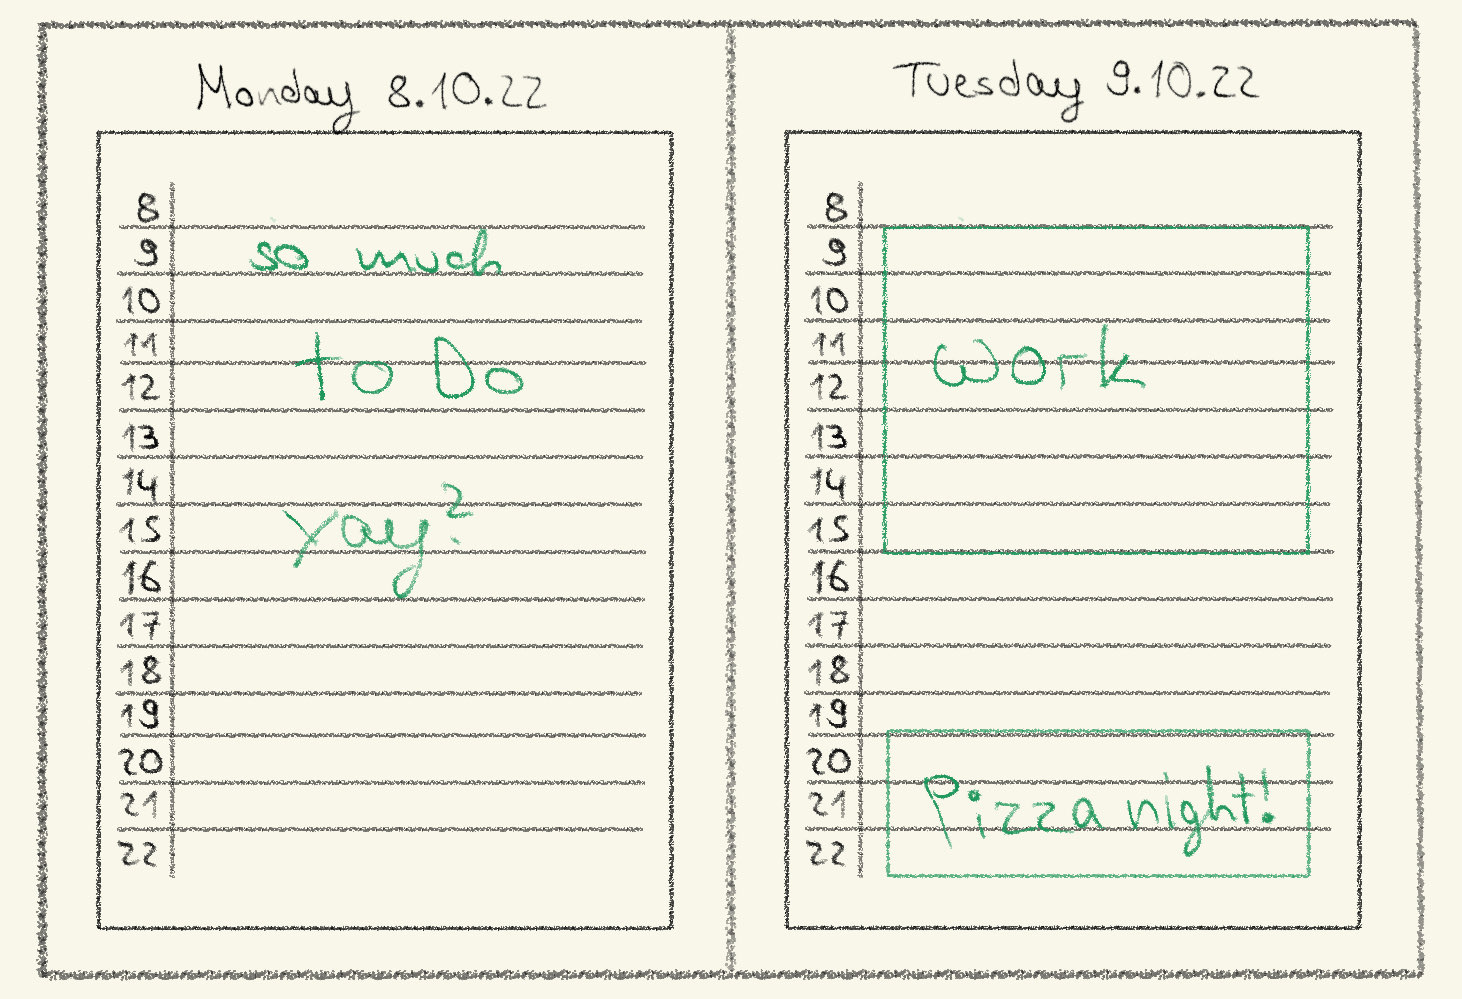 Monday 8.10.22
8
9 so much
10
11
12 to Do
13
14
15 Yay?
16
17
18
19
20
21
22
Tuesday 9.10.22
8
9
10
11
12 Work
13
14
15
16
17
18
19
20
21 Pizza night!
22